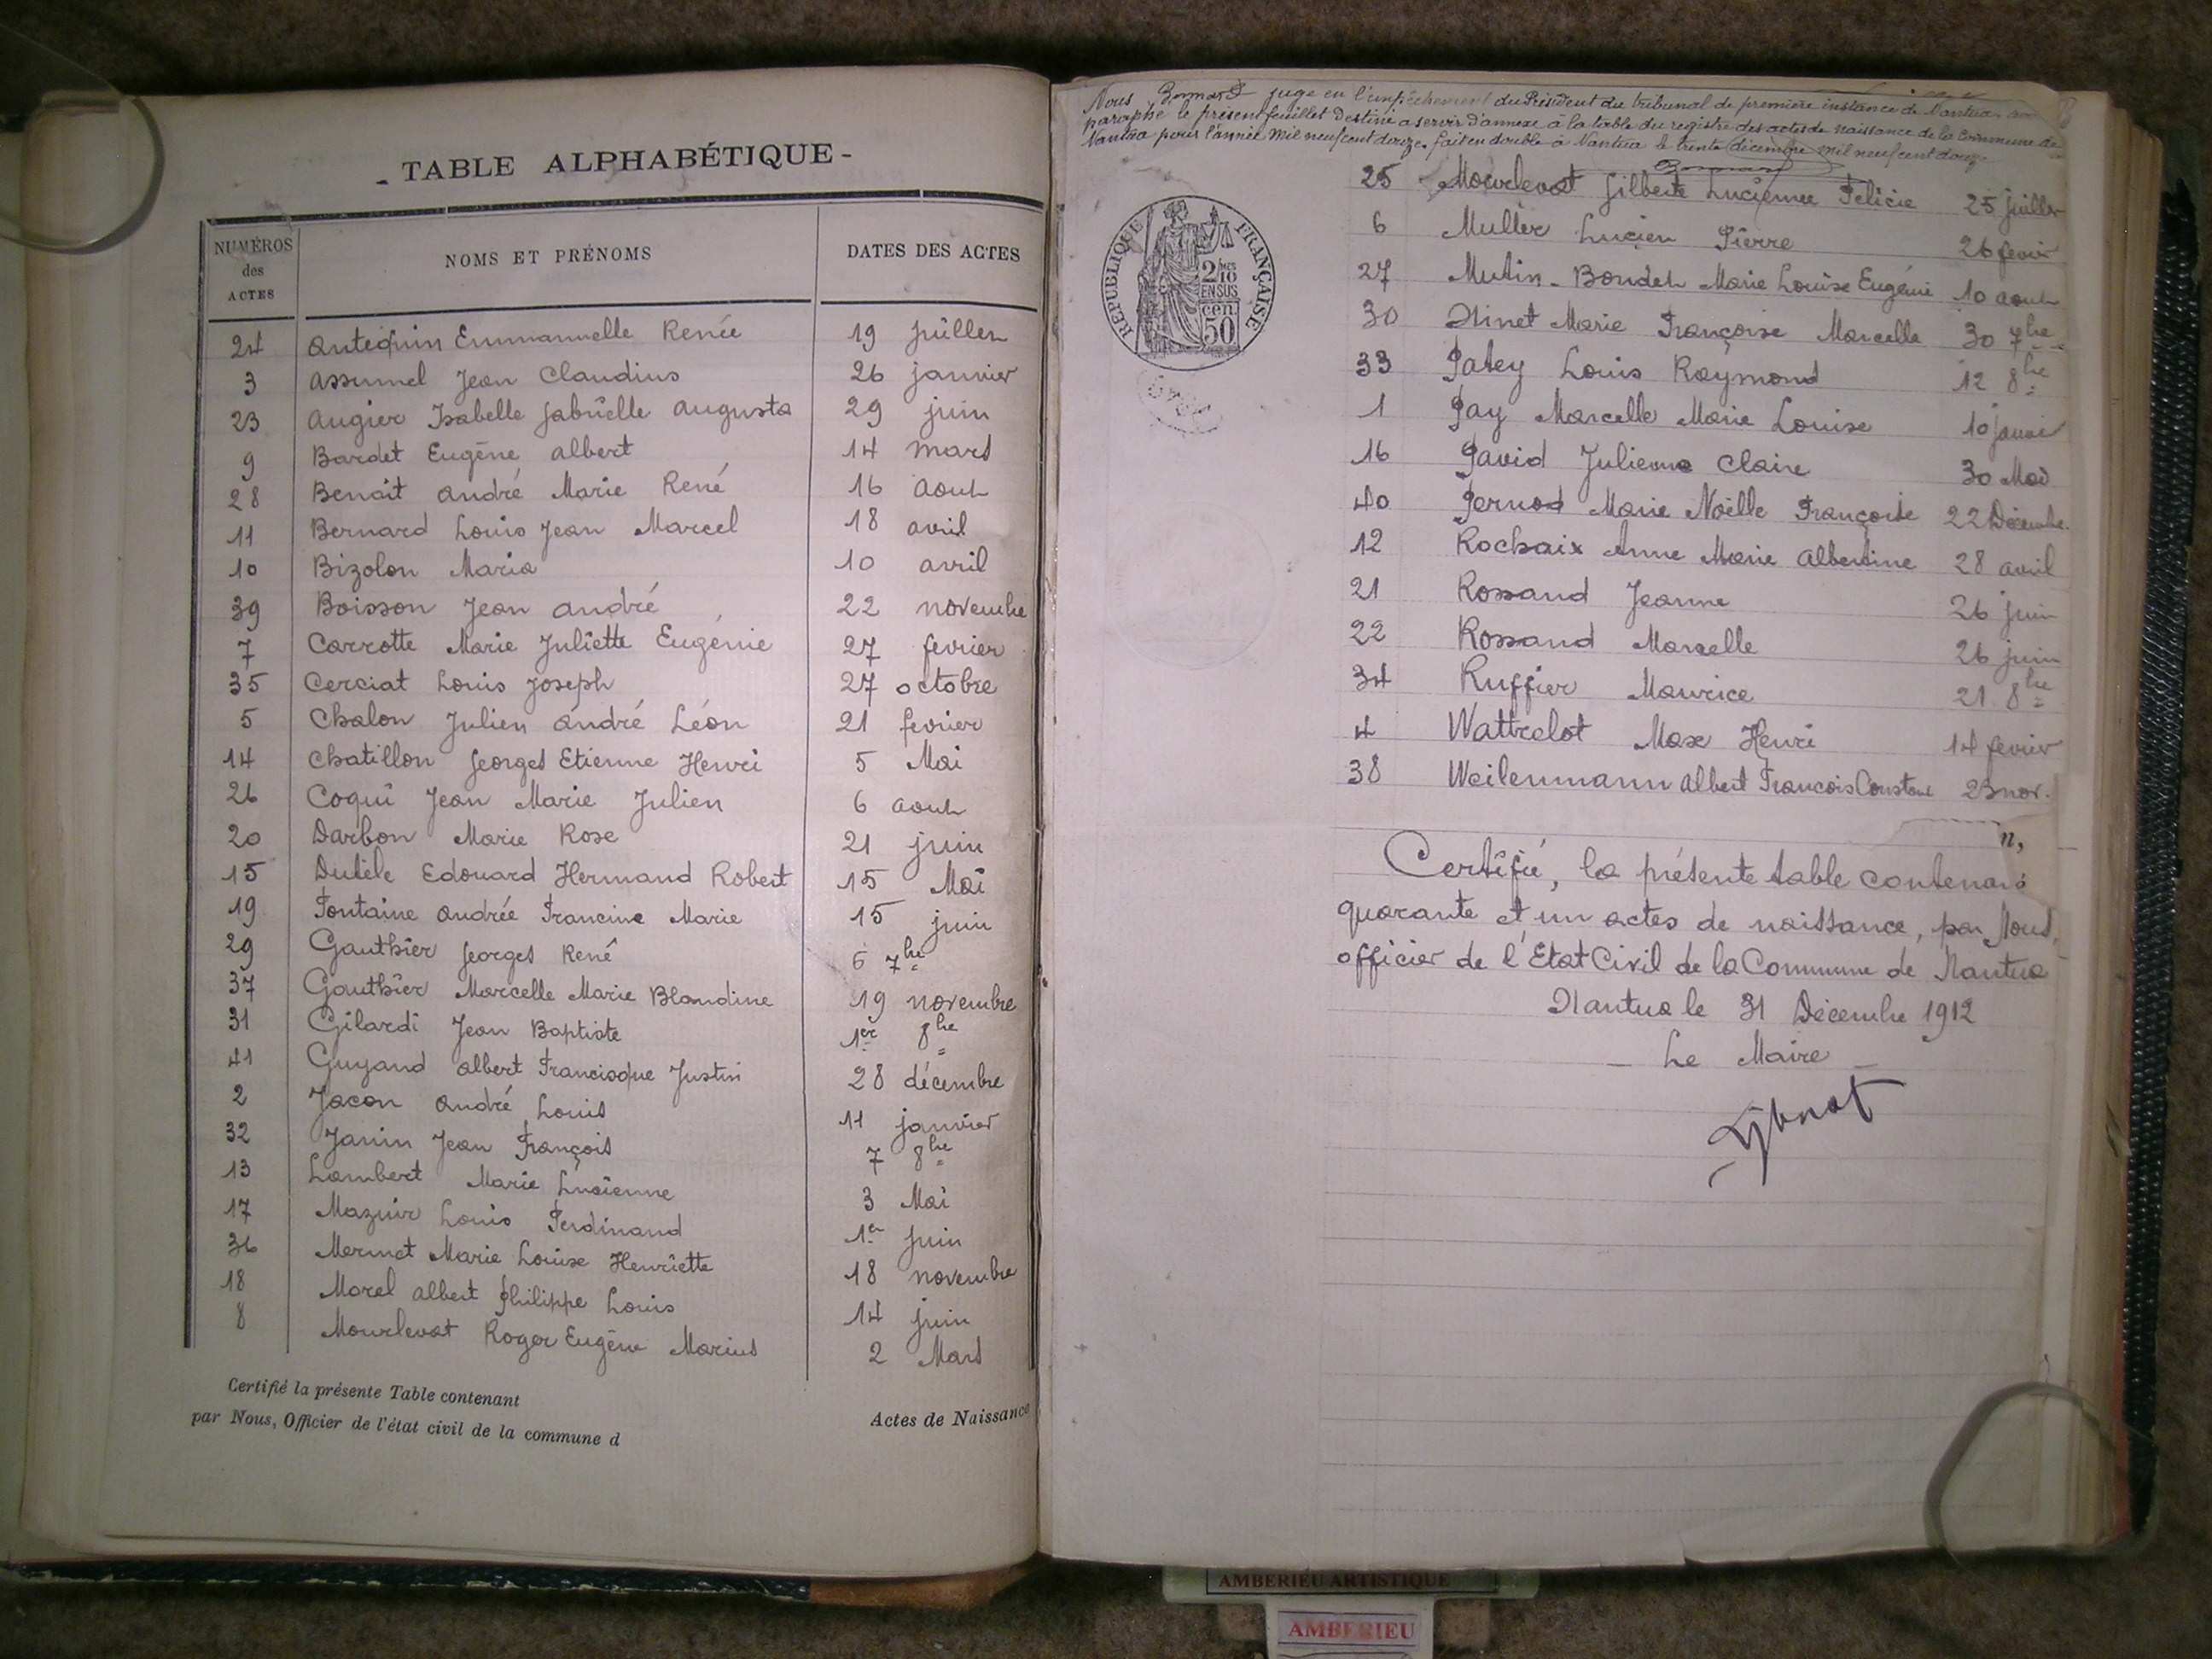 TABLE ALPHABÉTIQUE
NUMÉROS des ACTES
NOMS ET PRÉNOMS
DATES DES ACTES
24 Antequin Emmanuelle Renée 19 juillet
3 Assumel Jean Claudius 26 janvier
23 Augier Isabelle Gabrielle Augusta 29 juin
9 Bardet Eugène Albert 14 mars
28 Benoit André Marie René 16 Aout
11 Bernard Louis Jean Marcel 18 avril
10 Bizolon Maria 10 avril
39 Boisson Jean André 22 novembre
7 Carrotte Marie Juliette Eugénie 27 fevrier
35 Cerciat Louis Joseph 27 octobre
5 Chalon Julien André Léon 21 fevrier
14 Chatillon Georges Etienne Henri 5 Mai
26 Coqui Jean Marie Julien 6 aout
20 Darbon Marie Rose 21 juin
15 Edouard Hermand Robert 15 Mai
19 Fontaine Andrée Francine Marie 15 juin
29 Gauthier Georges René 6 7bre
37 Gauthier Marcelle Marie Blandine 19 novembre
31 Gilardi Jean Baptiste 1er 8bre
41 Guyand Albert Francisque Justin 28 décembre
2 Jacon André Louis 11 janvier
32 Janin Jean François 7 8bre
13 Lambert Marie Lucienne 3 Mai
17 Mazuir Louis Ferdinand 1er Juin
36 Mermet Marie Louise Henriette 18 novembre
18 Morel Albert Philippe Louis 14 juin
8 Mourlevat Roger Eugène Marius 2 Mars
Certifié la présente Table contenant Actes de Naissance
par Nous, Officier de l'état civil de la commune d
Nous Bonnard juge en l'empêchement du Président du tribunal de première instance de Nantua
paraphé le présent feuillet destiné a servir d'annexe à la table du registre des actes de naissance de la Commune de
Nantua pour l'année mil neuf cent douze. fait en double à Nantua le trente décembre mil neuf cent douze
REPUBLIQUE FRANÇAISE
2/10
EN SUS
cen.
50
25 Mourlevat Gilberte Lucienne Félicie 25 juillet
6 Muller Lucien Pierre 26 fevir
27 Mutin-Bondet Marie Louise Eugénie 10 aout
30 Ninet Marie Françoise Marcelle 30 7bre
33 Patey Louis Raymond 12 8bre
1 Pay Marcelle Marie Louise 10 janvi
16 Pavid Julienne Claire 30 Mai
40 Pernod Marie Noëlle Françoise 22 Décembre
12 Rochaix Anne Marie Albertine 28 avril
21 Rossand Jeanne 26 juin
22 Rossand Marcelle 26 juin
34 Ruffier Maurice 21 8bre
4 Wattrelot Max Henri 14 fevrier
38 Weilenmann Albert François Constant 23 nov.
n,
Certifié, la présente table contenant
quarante et un actes de naissance, par Nous,
officier de l'Etat Civil de la Commune de Nantua
Nantua le 31 Décembre 1912
Le Maire
AMBERIEU ARTISTIQUE
AMBERIEU